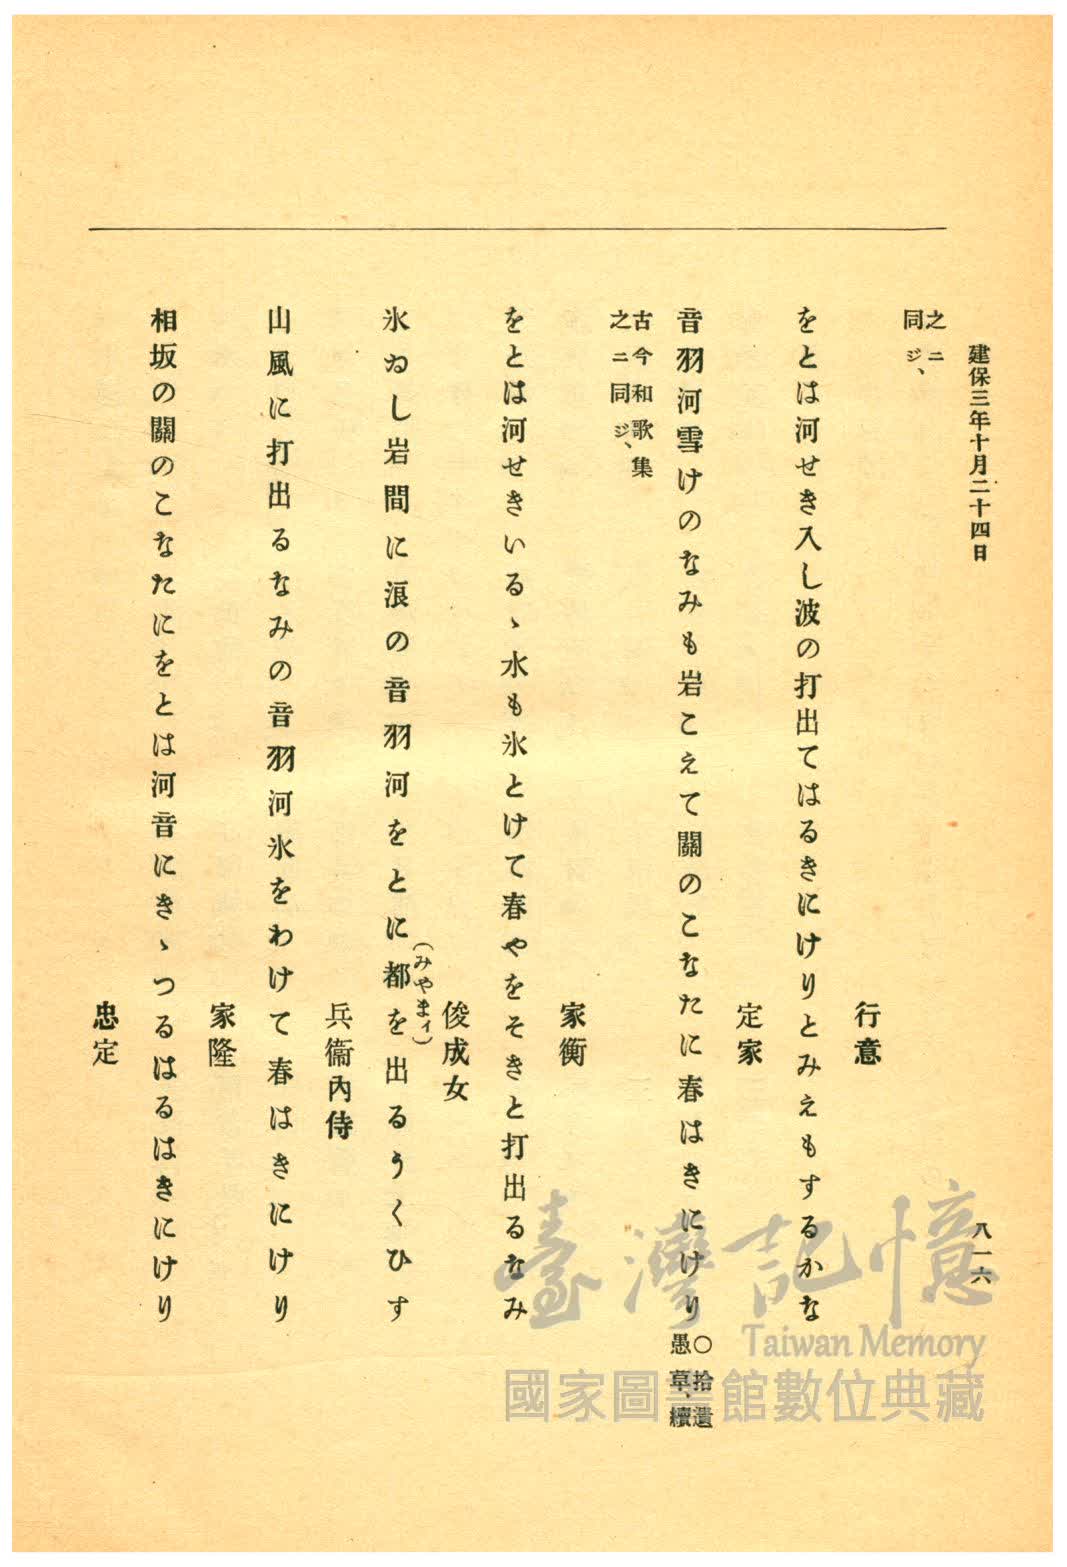 建保三年十月二十四日
八一六
之ニ
同ジ、
行意
をとは河せき入し波の打出てはるきにけりとみえもするかな
定家
音羽河雪けのなみも岩こえて關のこなたに春はきにけり
○拾遺
愚草、續
古今和歌集
之ニ同ジ、
家衡
をとは河せきいるゝ水も氷とけて春やをそきと打出るなみ
俊成女
(みやまイ)
氷ゐし岩間に浪の音羽河をとに都を出るうくひす
兵衞內侍
山風に打出るなみの音羽河氷をわけて春はきにけり
家隆
相坂の關のこなたにをとは河音にきゝつるはるはきにけり
忠定
臺灣記憶
Taiwan Memory
國家圖書館數位典藏